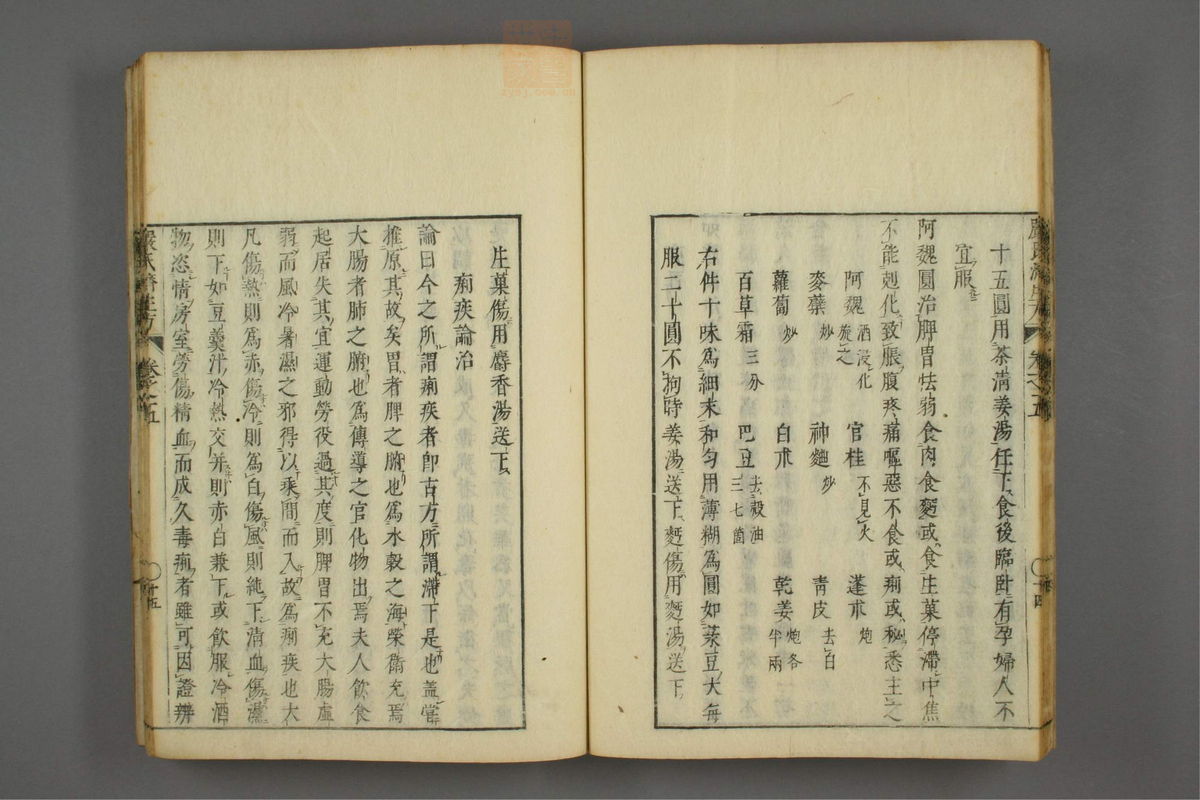 十五圓用茶清姜湯任下食後臨卧有孕婦人不
宜服
阿魏圓治脾胃怯弱食肉食麪或食生菓停滯中焦
不能剋化致脹腹疼痛嘔惡不食或痢或秘悉主之
阿魏酒浸化旋之 官桂不見火 蓬朮炮
麥蘗炒 神麯炒 青皮去白
蘿蔔炒 白朮 乾姜炮各半兩
百草霜三分 巴豆去殼油三七箇
右件十味為細末和勻用薄糊為圓如菉豆大每
服二十圓不拘時姜湯送下麪傷用麪湯送下
生菓傷用麝香湯送下
痢疾論治
論曰今之所謂痢疾者即古方所謂滯下是也盖嘗
推原其故矣胃者脾之腑也為水穀之海榮衛充焉
大腸者肺之腑也為傳導之官化物出焉夫人飲食
起居失其宜運動勞役過其度則脾胃不充大腸虛
弱而風冷暑濕之邪得以乘間而入故為痢疾也大
凡傷熱則為赤傷冷則為白傷風則純下清血傷濕
則下如豆羹汁冷熱交并則赤白兼下或飲服冷酒
物恣情房室勞傷精血而成久毒痢者雖可因證辨
嚴氏濟生方 卷之五 十五